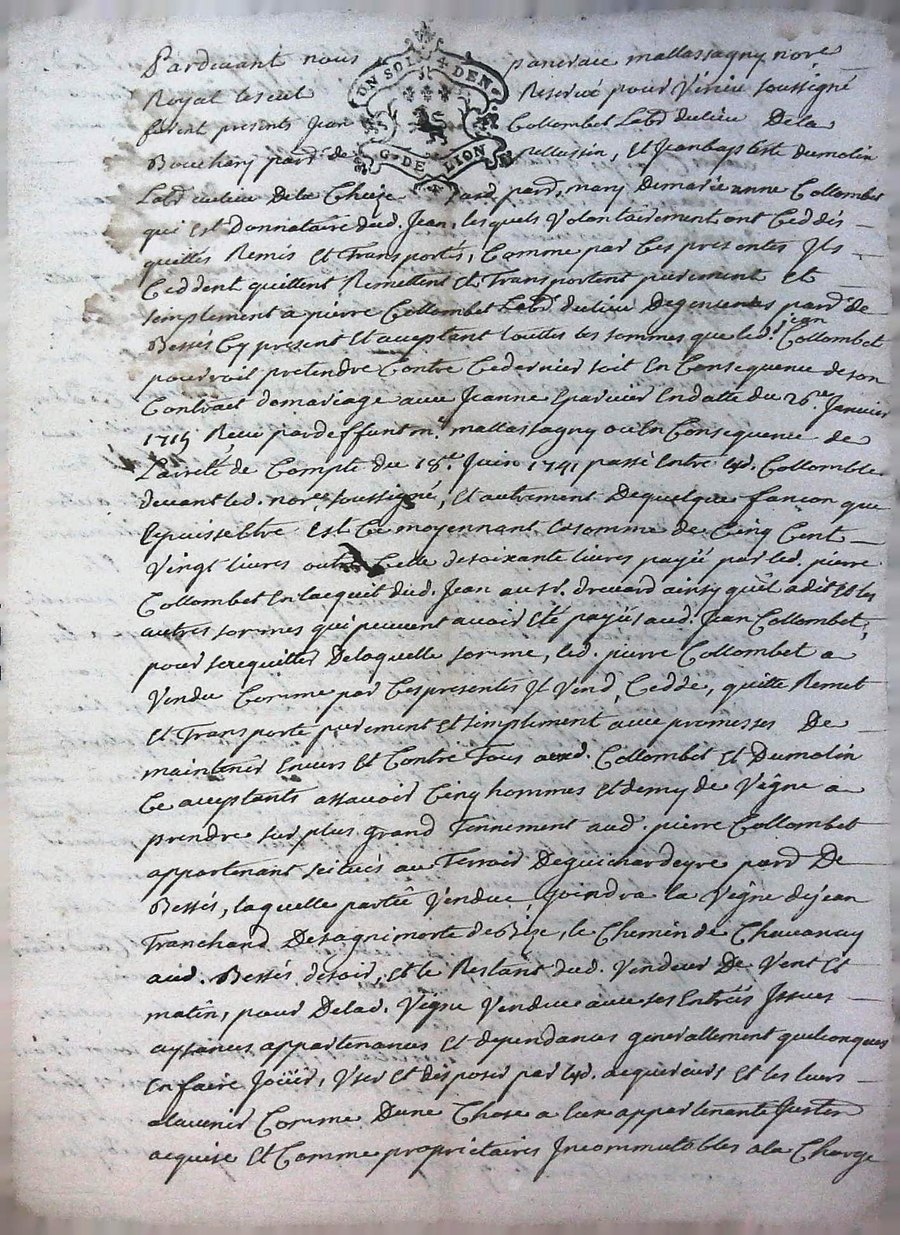 Pardevant nous pancrace mallassagny nore
Royal Reservé pour Vérieu soussigné
furent presents Jean Collombet Labr du lieu De la
Bouchery pardse de pellussin, et Jean baptiste dumolin
Labr du lieu De la Chaise pardse, mary De marie anne Collombet
qui est Donnataire dud. Jean, lesquels Volontairement ont Ceddés
quittés Remis et Transportés, Comme par Ces presentes Ils
Ceddent quittent Remettent et Transportent purement et
simplement a pierre Collombet Labr du lieu De pardse de
Bessés Cy present et acceptant toutes les sommes que led. Jean Collombet
pourroit pretendre Contre Ce dernier soit En Consequence de son
Contract de mariage avec Jeanne Eparvier En datte du 26me Janvier
1715 Receu par deffunt me. mallassagny ou En Consequence de
L'areté de Compte du 18e. Juin 1741 passé Entre lesd. Collombets
devant led. nore. soussigné, et autrement De quelque fancon que
Ce puisse Etre Est Ce moyennant la somme de Cinq Cent
Vingt livres outre Celle de soixante livres payée par led. pierre
Collombet En l'acquit dud. Jean au sr. drevard ainsy qu'il a dit Et les
autres sommes qui peuvent avoir été payés aud. Jean Collombet,
pour s'acquitter De laquelle somme, led. pierre Collombet a
Vendu Comme par Ces presentes Il Vend, Cedde, quitte Remet
et Transporte purement et simplement avec promesses De
maintenir Envers et Contre Tous auxd. Collombet et Dumolin
Ce acceptants assavoir Cinq hommes et demy de Vigne a
prendre sur plus grand Tennement aud. pierre Collombet
appartenant scitués au Terroir De guichardeyre pardse De
Bessés, laquelle partie Vendue joindra la Vigne de jean
Tranchand De sagnimorte de Bize, le Chemin de Chavanay
aud. Bessés de soir, et le Restant dud. Vendeur De Vent et
matin, pour De lad. Vigne Vendue avec ses Entrées Issues
aysances appartenances et dependances generallement quelconques
En faire Joüir, Vser et disposer par lesd. acquereurs et les leurs
a l'avenir Comme D'une Chose a eux appartenante Justem
acquise et Comme propriétaires Incommutables a la Charge
ON SOL 4 DEN
G. DE LION